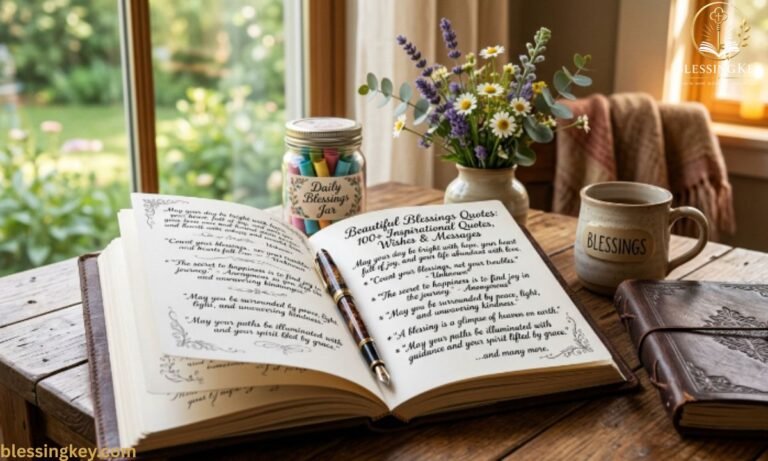 BLESSINGKEY
Daily
Blessings
Jar
BLESSINGS
May your day be bright with hope, your
"Count your blessings, not your troubles
and hearts full
"The secret to happiness is to find joy in
journey." - Anonymous
and unwavering kindness.
"May you be surrounded by peace, light,
light, and unwavering kindness."
"May your paths be illuminated with
and your spirit filled by grace."
Beautiful Blessings Quotes:
100+ Inspirational Quotes,
Wishes & Messages
May your day be bright with hope, your heart
full of joy, and your life abundant with love.
"Count your blessings, not your troubles."
- Unknown
"The secret to happiness is to find joy in
the journey." - Anonymous
"May you be surrounded by peace, light,
and unwavering kindness."
"A blessing is a glimpse of heaven on earth."
"May your paths be illuminated with
guidance and your spirit lifted by grace."
...and many more.
blessingkey.com